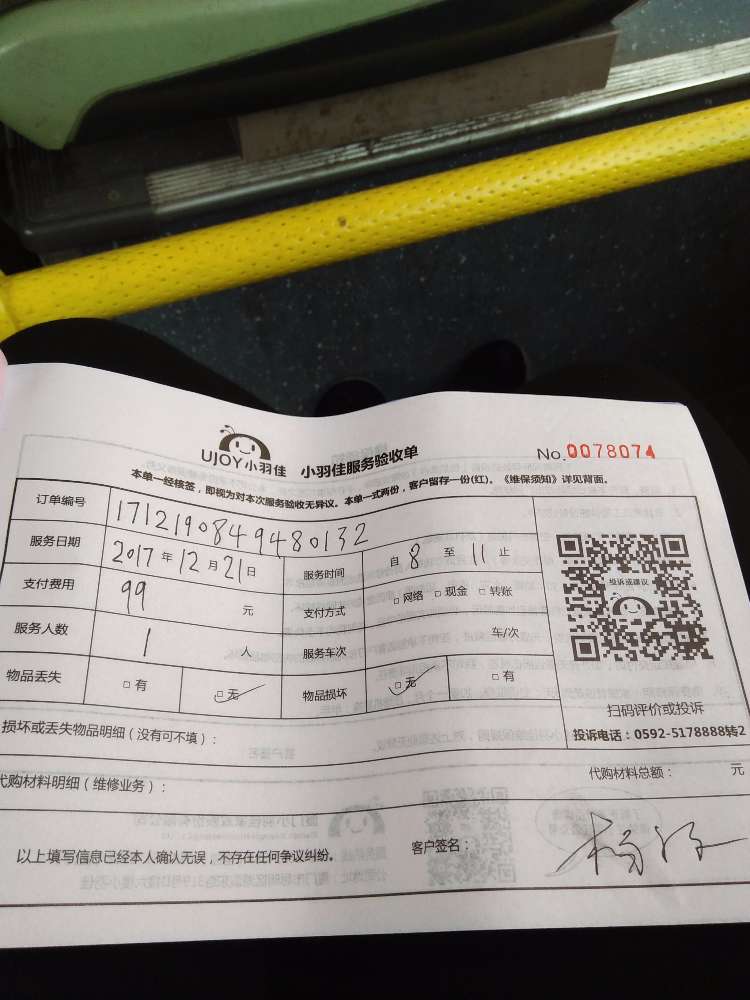 UJOY小羽佳 小羽佳服务验收单 No.0078074
本单一经核签，即视为对本次服务验收无异议。本单一式两份，客户留存一份(红)。《维保须知》详见背面。
订单编号 1712190849480132
服务日期 2017 年 12 月 21 日 服务时间 自 8 至 11 止
支付费用 99 元 支付方式 □ 网络 □ 现金 □ 转账
服务人数 1 人 服务车次 车/次
物品丢失 □ 有 □ 无 物品损坏 □ 无 □ 有
投诉或建议
扫码评价或投诉
投诉电话：0592-5178888转2
损坏或丢失物品明细（没有可不填）：
代购材料明细（维修业务）： 代购材料总额： 元
以上填写信息已经本人确认无误，不存在任何争议纠纷。 客户签名：